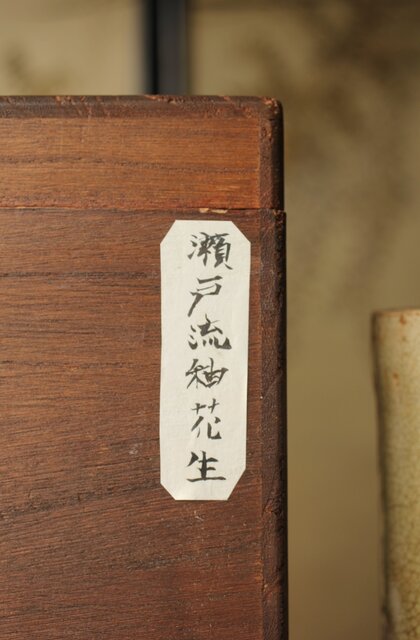 瀬戸流釉花生